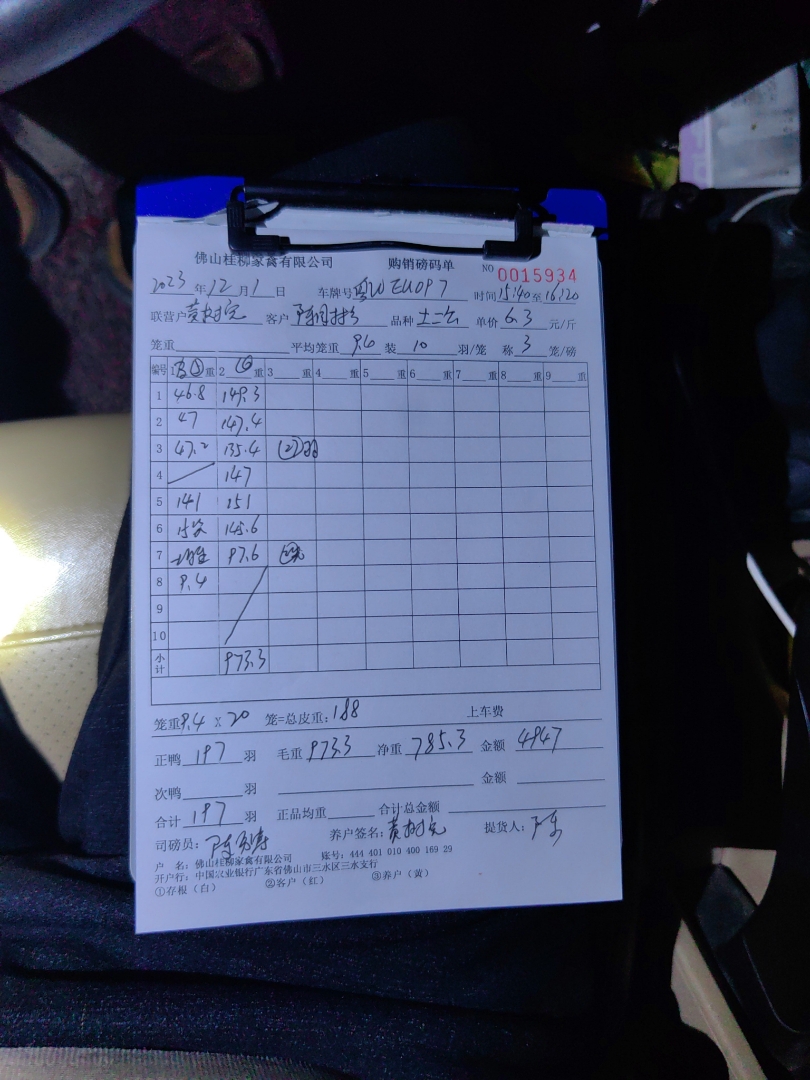 佛山桂柳家禽有限公司 购销磅码单 NO 0015934
2023 年 12 月 1 日 车牌号 时间 15:40 至 16:20
联营户 黄树完 客户 品种 土二公 单价 6.3 元/斤
笼重 平均笼重 9.6 装 10 羽/笼 称 3 笼/磅
编号 1 重 2 重 3 重 4 重 5 重 6 重 7 重 8 重 9 重
1 46.8 149.3
2 47 147.4
3 47.2 135.4 (27)羽
4 147
5 141 151
6 145.6
7 97.6
8 9.4
9
10
小计 973.3
笼重 9.4 X 20 笼=总皮重: 188 上车费
正鸭 197 羽 毛重 973.3 净重 785.3 金额 4947
次鸭 羽 金额
合计 197 羽 正品均重 合计总金额
司磅员: 养户签名: 黄树完 提货人: 陈
户 名: 佛山桂柳家禽有限公司 账号: 444 401 010 400 169 29
开户行: 中国农业银行广东省佛山市三水区三水支行
①存根（白） ②客户（红） ③养户（黄）